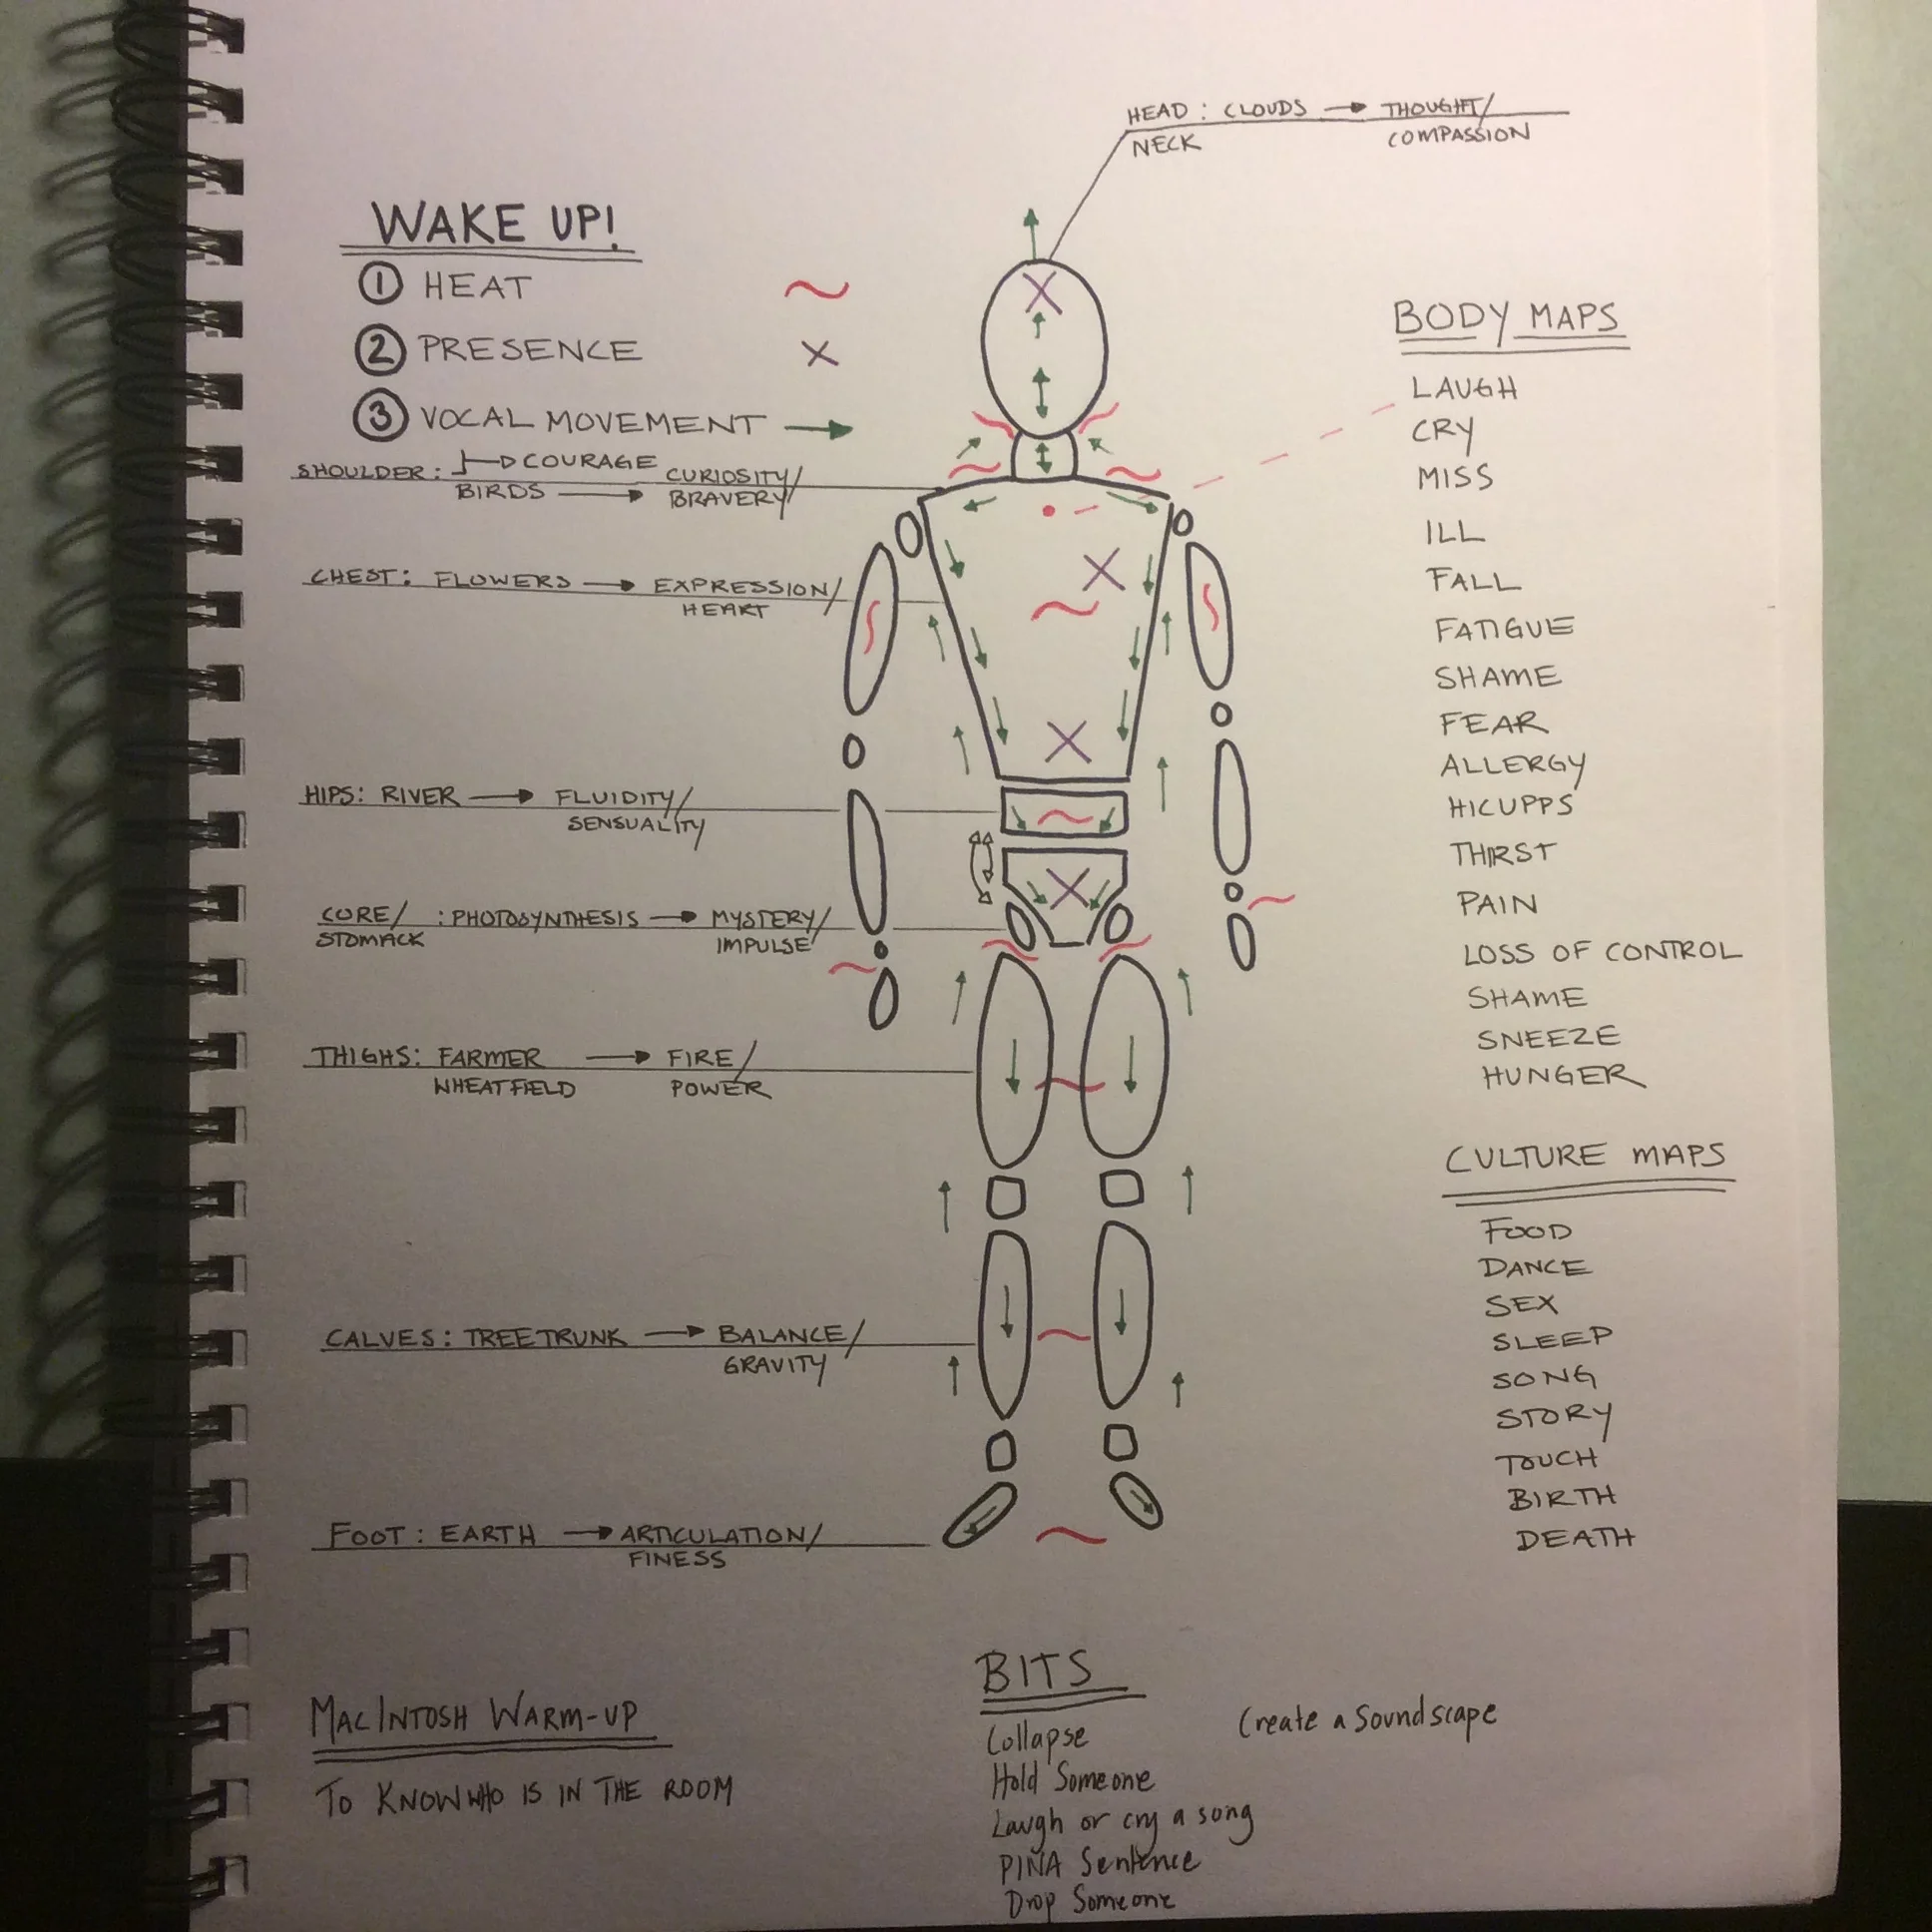 HEAD: CLOUDS → THOUGHT/
NECK COMPASSION
WAKE UP!
① HEAT
② PRESENCE
③ VOCAL MOVEMENT
SHOULDER: COURAGE CURIOSITY/
BIRDS → BRAVERY
CHEST: FLOWERS → EXPRESSION/
HEART
HIPS: RIVER → FLUIDITY/
SENSUALITY
CORE/ : PHOTOSYNTHESIS → MYSTERY/
STOMACK IMPULSE
THIGHS: FARMER → FIRE/
WHEATFIELD POWER
CALVES: TREETRUNK → BALANCE/
GRAVITY
FOOT: EARTH → ARTICULATION/
FINESS
BODY MAPS
LAUGH
CRY
MISS
ILL
FALL
FATIGUE
SHAME
FEAR
ALLERGY
HICUPPS
THIRST
PAIN
LOSS OF CONTROL
SHAME
SNEEZE
HUNGER
CULTURE MAPS
FOOD
DANCE
SEX
SLEEP
SONG
STORY
TOUCH
BIRTH
DEATH
MACINTOSH WARM-UP
TO KNOW WHO IS IN THE ROOM
BITS
Collapse
Hold Someone
Laugh or cry a song
PINA Sentence
Drop Someone
Create a Soundscape